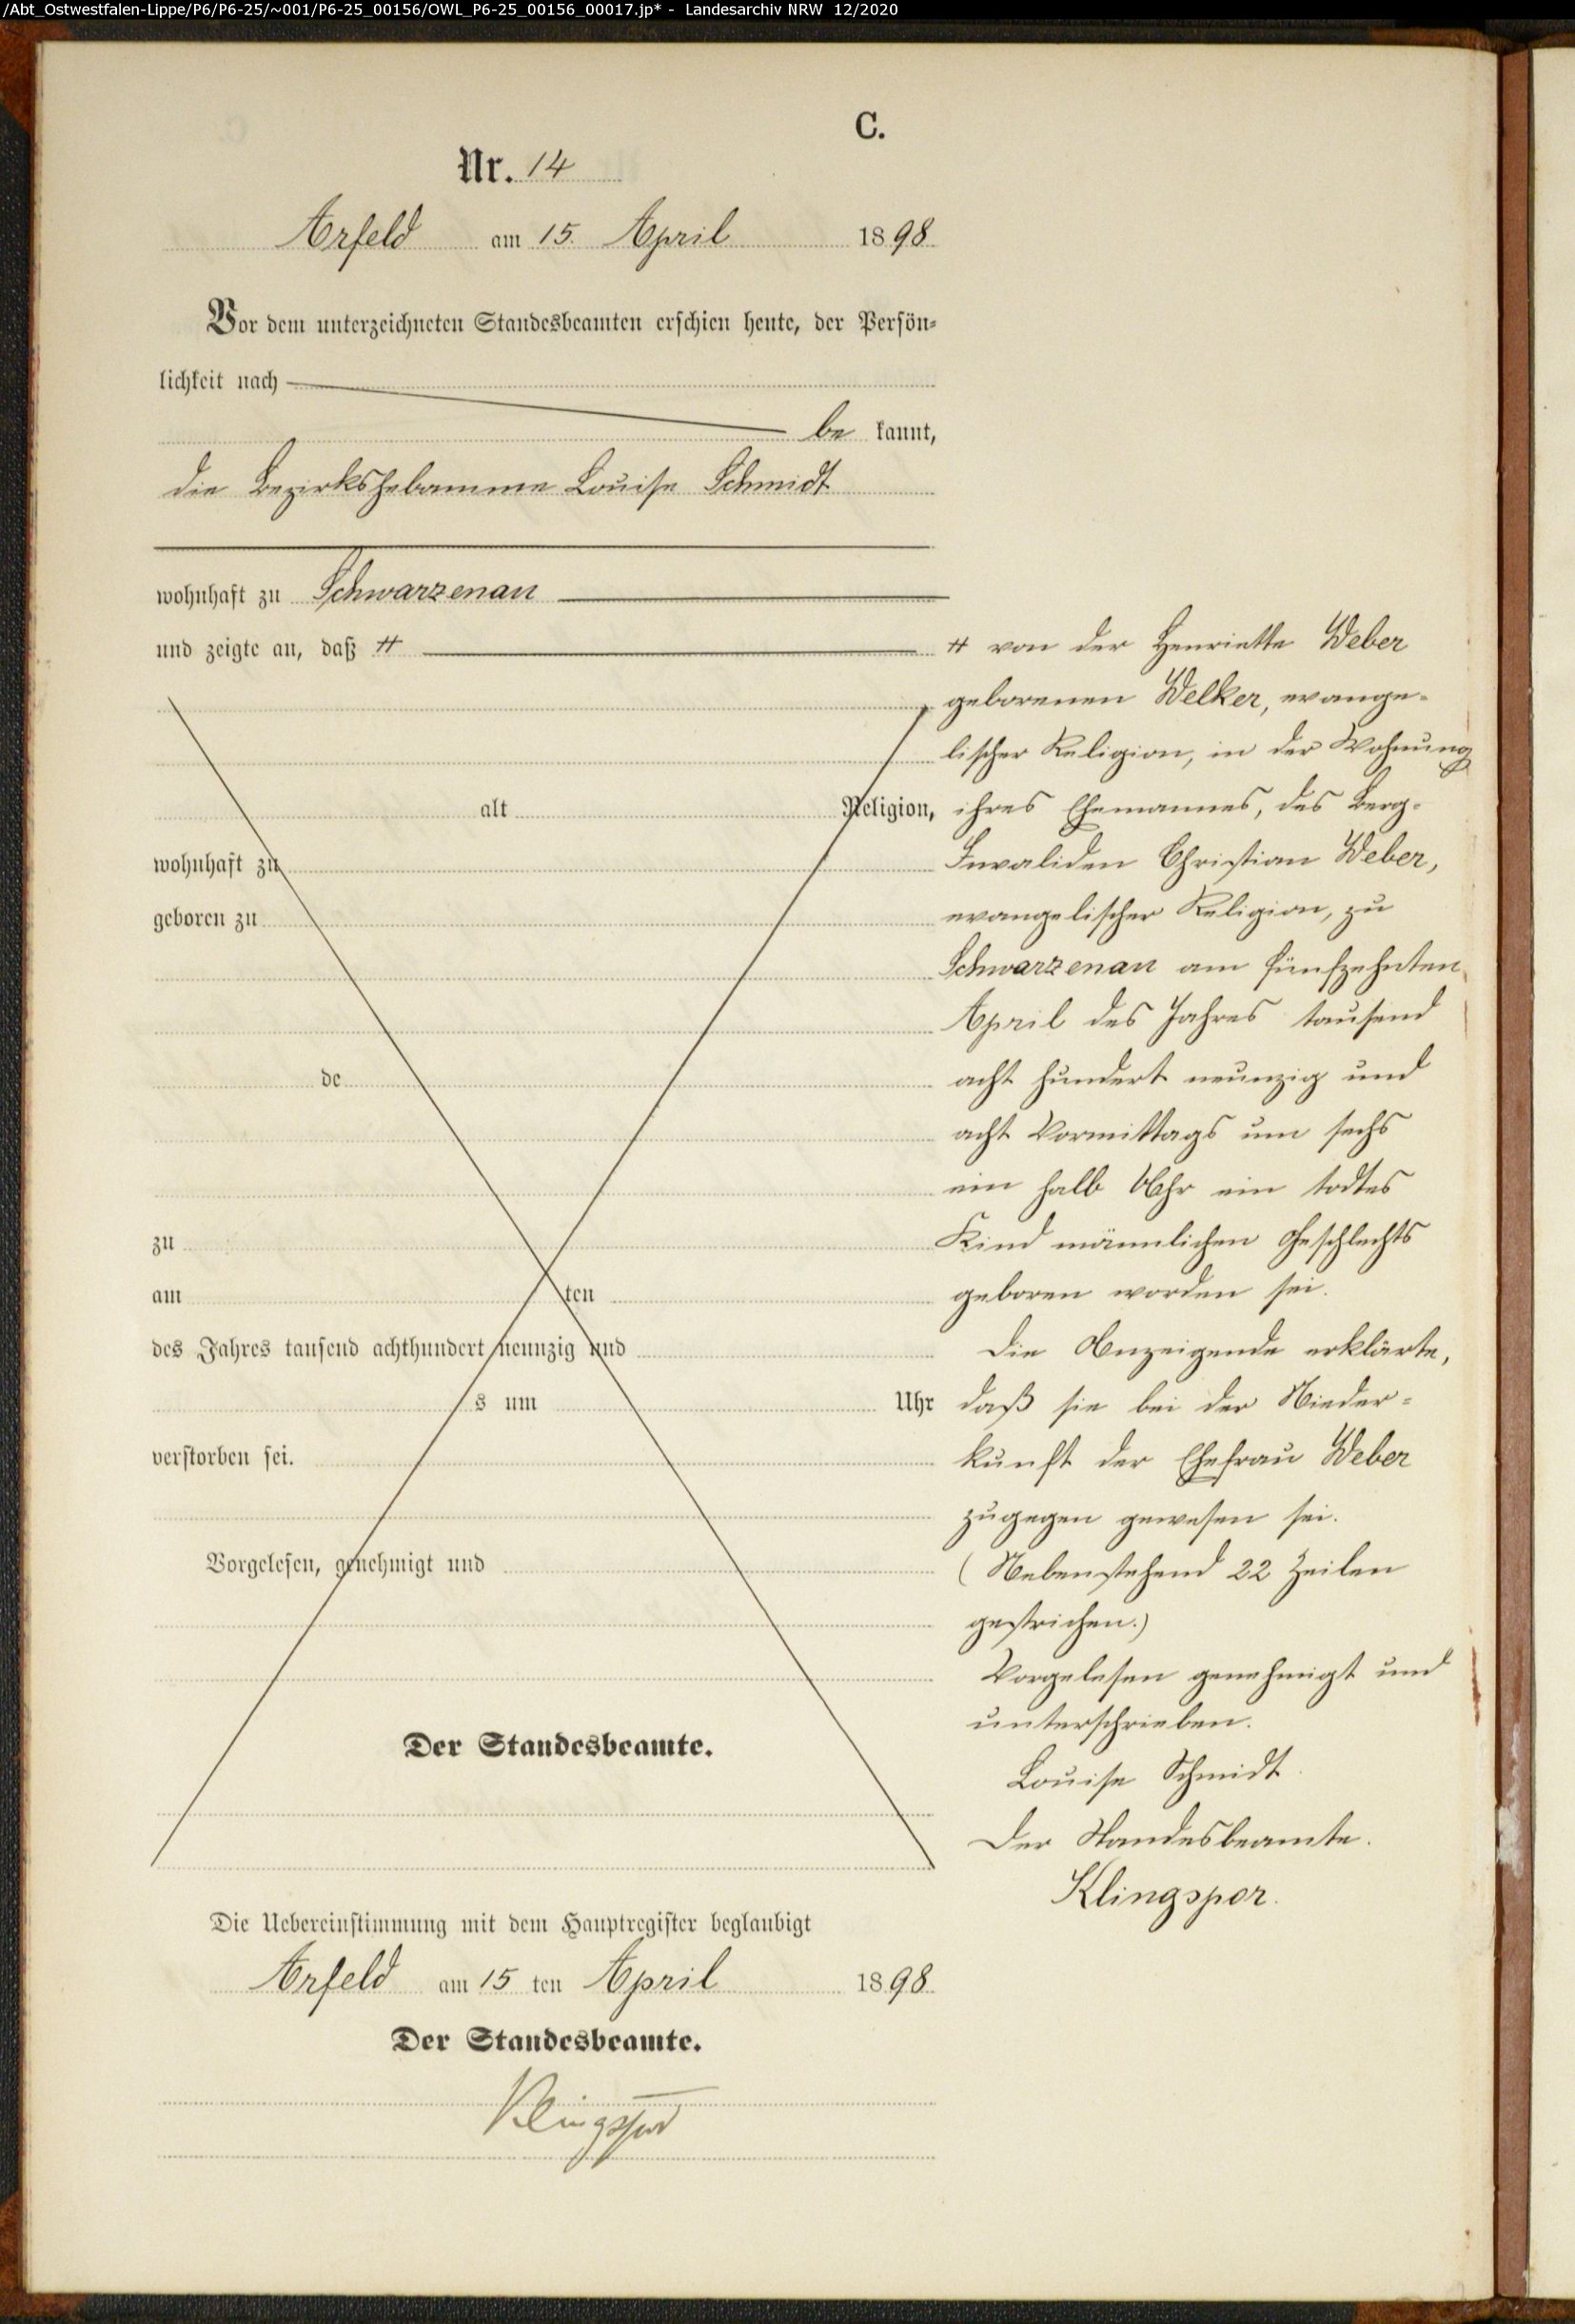 /Abt_Ostwestfalen-Lippe/P6/P6-25/~001/P6-25_00156/OWL_P6-25_00156_00017.jp* - Landesarchiv NRW 12/2020
C.
Nr. 14
Arfeld am 15. April 1898
Vor dem unterzeichneten Standesbeamten erschien heute, der Persön-
lichkeit nach
be kannt,
die Bezirkshebamme Louise Schmidt
wohnhaft zu Schwarzenau
und zeigte an, daß #
alt Religion,
wohnhaft zu
geboren zu
de
zu
am ten
des Jahres tausend achthundert neunzig und
s um Uhr
verstorben sei.
Vorgelesen, genehmigt und
Der Standesbeamte.
# von der Henriette Weber
geborenen Welker, evange-
lischer Religion, in der Wohnung
ihres Ehemannes, des Berg-
Invaliden Christian Weber,
evangelischer Religion, zu
Schwarzenau am fünfzehnten
April des Jahres tausend
acht hundert neunzig und
acht Vormittags um sechs
ein halb Uhr ein todtes
Kind männlichen Geschlechts
geboren worden sei.
Die Anzeigende erklärte,
daß sie bei der Nieder-
kunft der Ehefrau Weber
zugegen gewesen sei.
(Nebenstehend 22 Zeilen
gestrichen.)
Vorgelesen genehmigt und
unterschrieben.
Louise Schmidt
Der Standesbeamte.
Klingspor.
Die Uebereinstimmung mit dem Hauptregister beglaubigt
Arfeld am 15 ten April 1898
Der Standesbeamte.
Klingspor